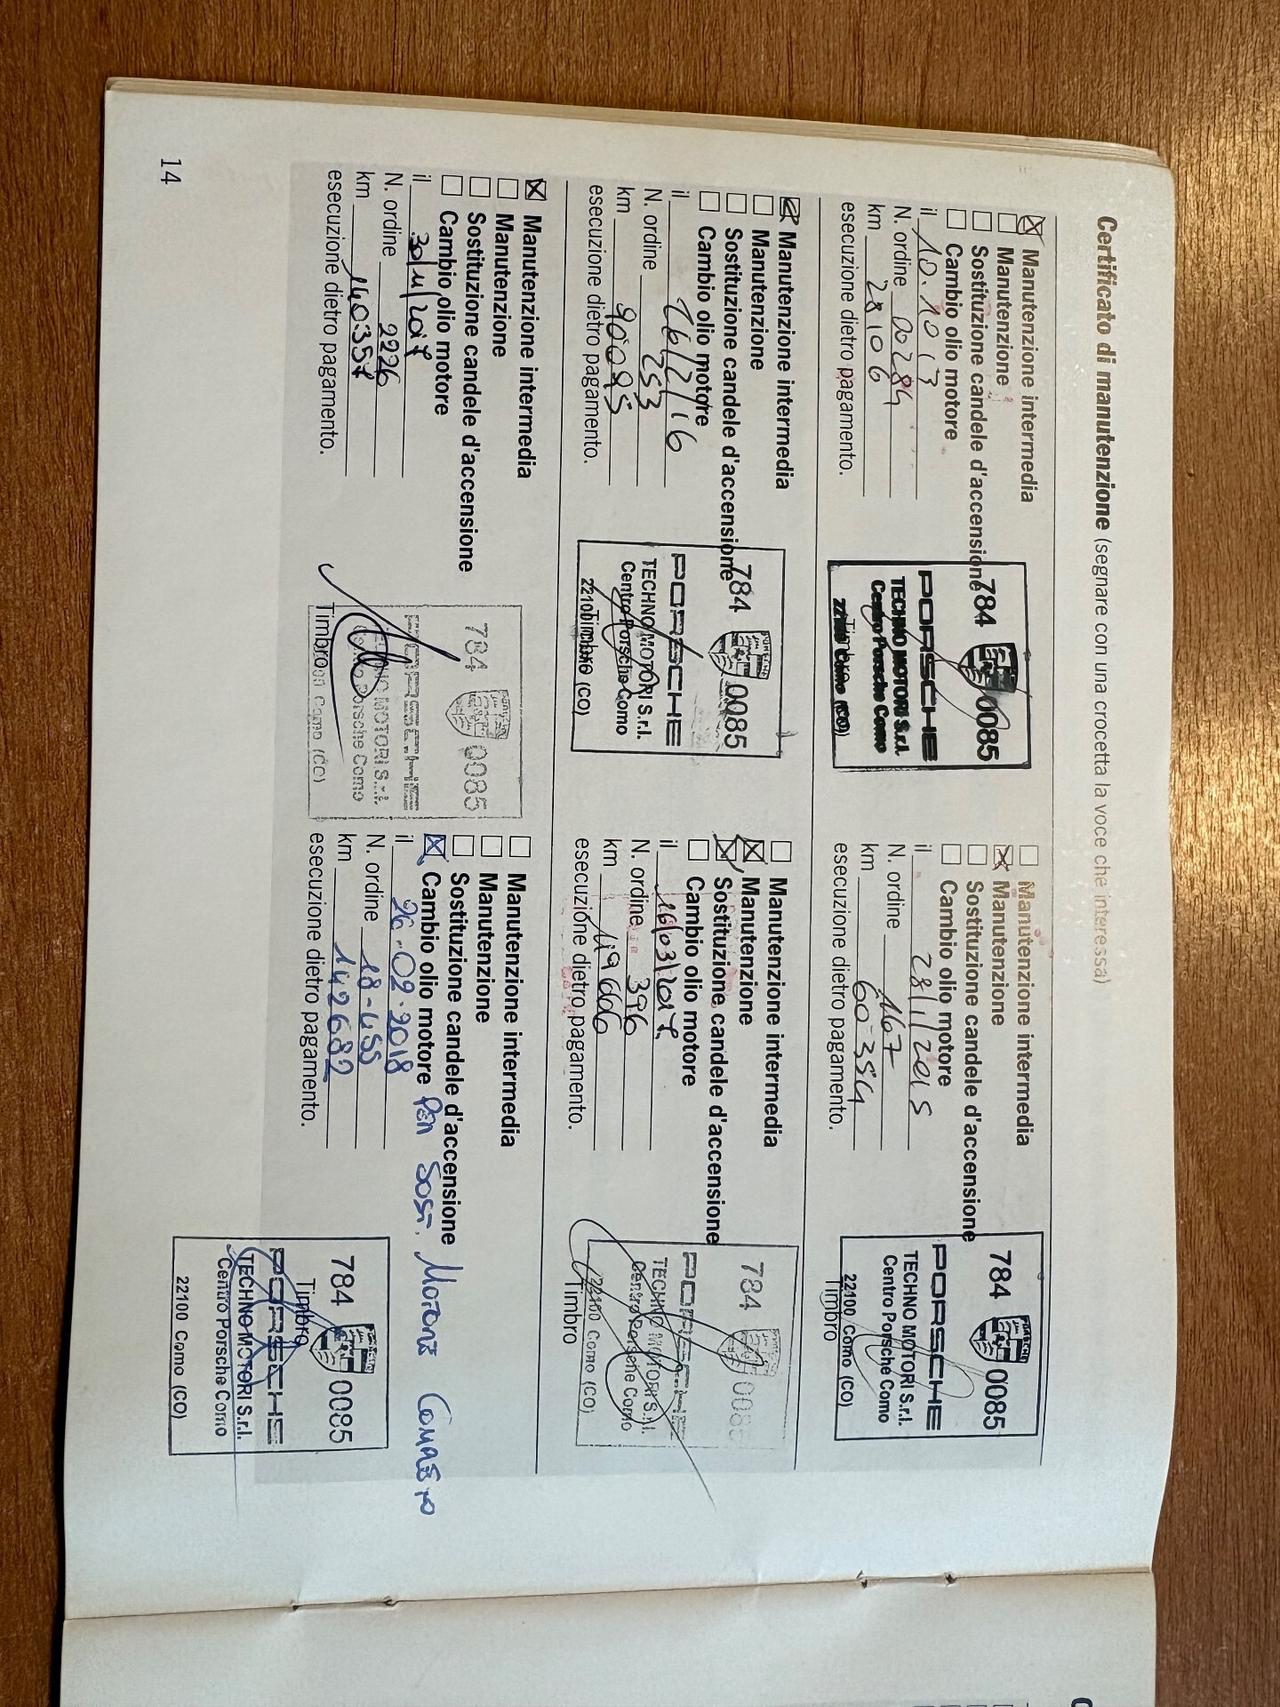 Certificato di manutenzione (segnare con una crocetta la voce che interessa)
Manutenzione intermedia
Manutenzione
Sostituzione candele d'accensione
Cambio olio motore
il 10.10 13
N. ordine 00284
km 28106
esecuzione dietro pagamento.
784 0085
PORSCHE
TECHNO MOTORI S.r.l.
Centro Porsche Como
22100 Como (CO)
Timbro
Manutenzione intermedia
Manutenzione
Sostituzione candele d'accensione
Cambio olio motore
il 28/1/2015
N. ordine 167
km 60354
esecuzione dietro pagamento.
784 0085
PORSCHE
TECHNO MOTORI S.r.l.
Centro Porsche Como
22100 Como (CO)
Timbro
Manutenzione intermedia
Manutenzione
Sostituzione candele d'accensione
Cambio olio motore
il 16/2/16
N. ordine 253
km 90095
esecuzione dietro pagamento.
784 0085
PORSCHE
TECHNO MOTORI S.r.l.
Centro Porsche Como
22100 Como (CO)
Timbro
Manutenzione intermedia
Manutenzione
Sostituzione candele d'accensione
Cambio olio motore
il 16/03/2017
N. ordine 396
km 119666
esecuzione dietro pagamento.
784 0085
PORSCHE
TECHNO MOTORI S.r.l.
Centro Porsche Como
22100 Como (CO)
Timbro
Manutenzione intermedia
Manutenzione
Sostituzione candele d'accensione
Cambio olio motore
il 30/11/2017
N. ordine 2226
km 140357
esecuzione dietro pagamento.
784 0085
PORSCHE
TECHNO MOTORI S.r.l.
Centro Porsche Como
Como (CO)
Timbro
Manutenzione intermedia
Manutenzione
Sostituzione candele d'accensione
Cambio olio motore PER SOST. MOTORE COMPLETO
il 26.02.2018
N. ordine 18-455
km 142682
esecuzione dietro pagamento.
784 0085
Timbro
PORSCHE
TECHNO MOTORI S.r.l.
Centro Porsche Como
22100 Como (CO)
14